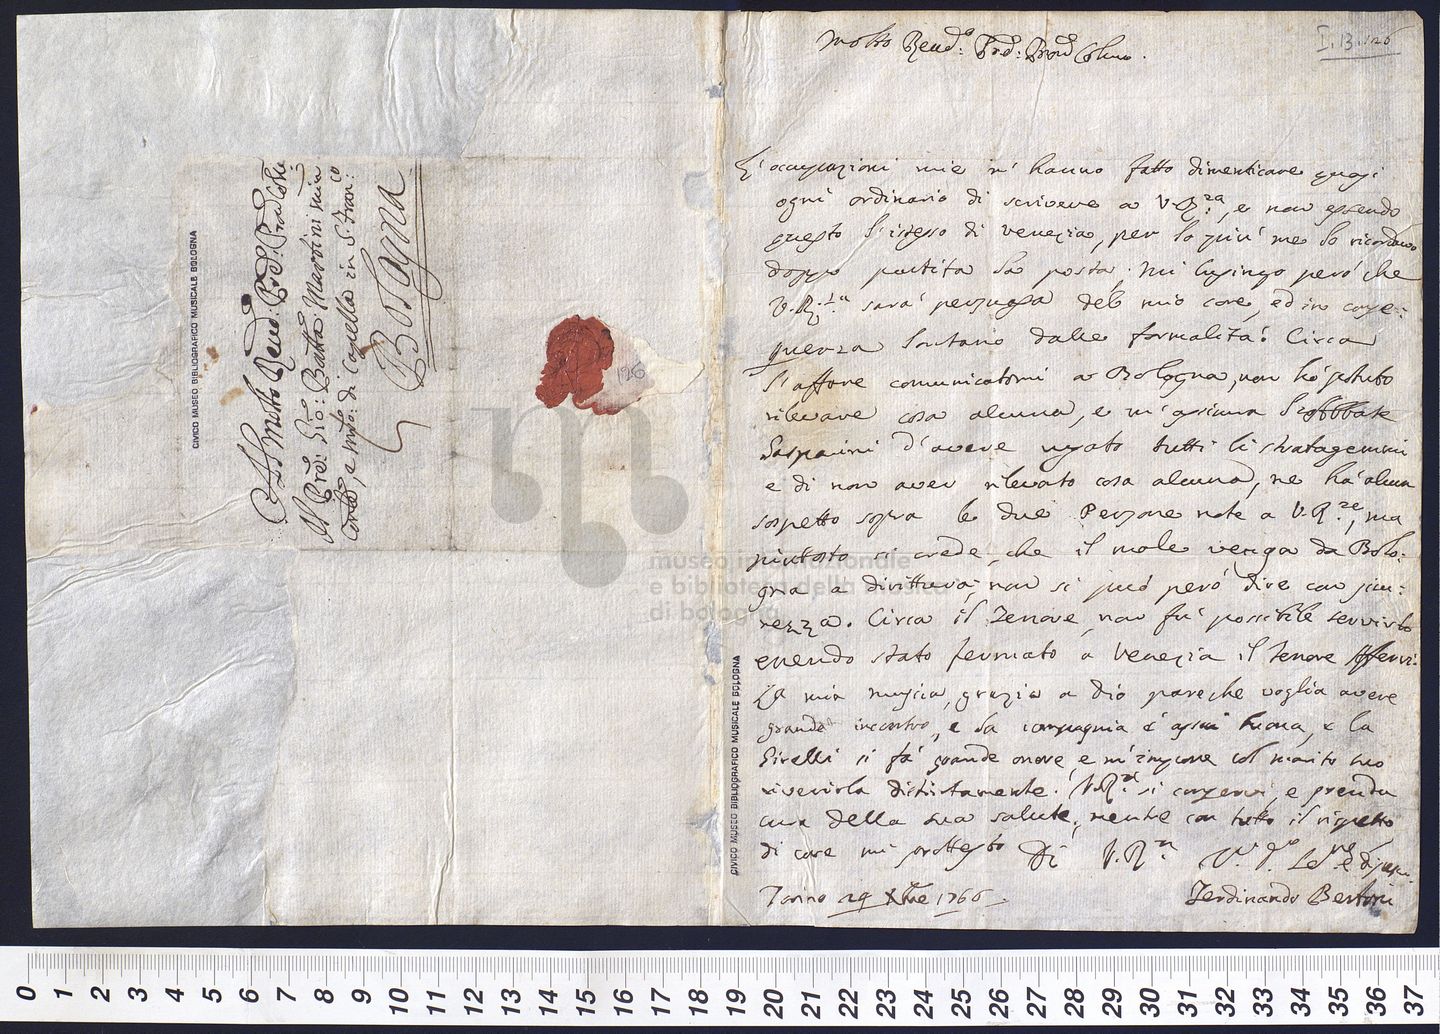 Molto Rend:o Prd: Pron Colmo.
I. 13. 126
L'occupazioni mie m'hanno fatto dimenticare quasi
ogni ordinario di scrivere a V.R.za, e non essendo
questo l'istesso di Venezia, per lo più me lo ricordavo
doppo partita la posta. Mi lusingo però che
V.R.za sarà persuasa del mio core, ed in conse:
guenza lontano dalle formalità. Circa
l'affare comunicatomi a Bologna, non hò potuto
rilevare cosa alcuna, e m'assicura l'Abbate
Gasparini d'avere usato tutti li stratagemmi
e di non aver rilevato cosa alcuna, ne hà alcun
sospetto sopra le due Persone note a V.R.ze, ma
piutosto si crede, che il male venga da Bolo:
gna a dirittura, non si può però dire con sicu:
rezza. Circa il Tenore, non fù possibile servirlo
essendo stato fermato a Venezia il Tenore
La mia musica, grazia a Dio pare che voglia avere
grande incontro, e la compagnia è assai buona, e la
Girelli si fà grande onore, e m'impone col marito suo
riverirla distintamente. V.R.za si conservi, e prenda
cura della sua salute, mentre con tutto il rispetto
di core mi protesto Di V.R.za
Torino 29 Xbre 1766
Ferdinando Bertoni
Al molto Rend: Prd: Prod Colmo
Il Pre Gio: Batta Martini min
Convle, e Mro: di Capella in S. Fran:co
Bologna
126
CIVICO MUSEO BIBLIOGRAFICO MUSICALE BOLOGNA
CIVICO MUSEO BIBLIOGRAFICO MUSICALE BOLOGNA
museo internazionale
e biblioteca della musica
di bologna
0 1 2 3 4 5 6 7 8 9 10 11 12 13 14 15 16 17 18 19 20 21 22 23 24 25 26 27 28 29 30 31 32 33 34 35 36 37